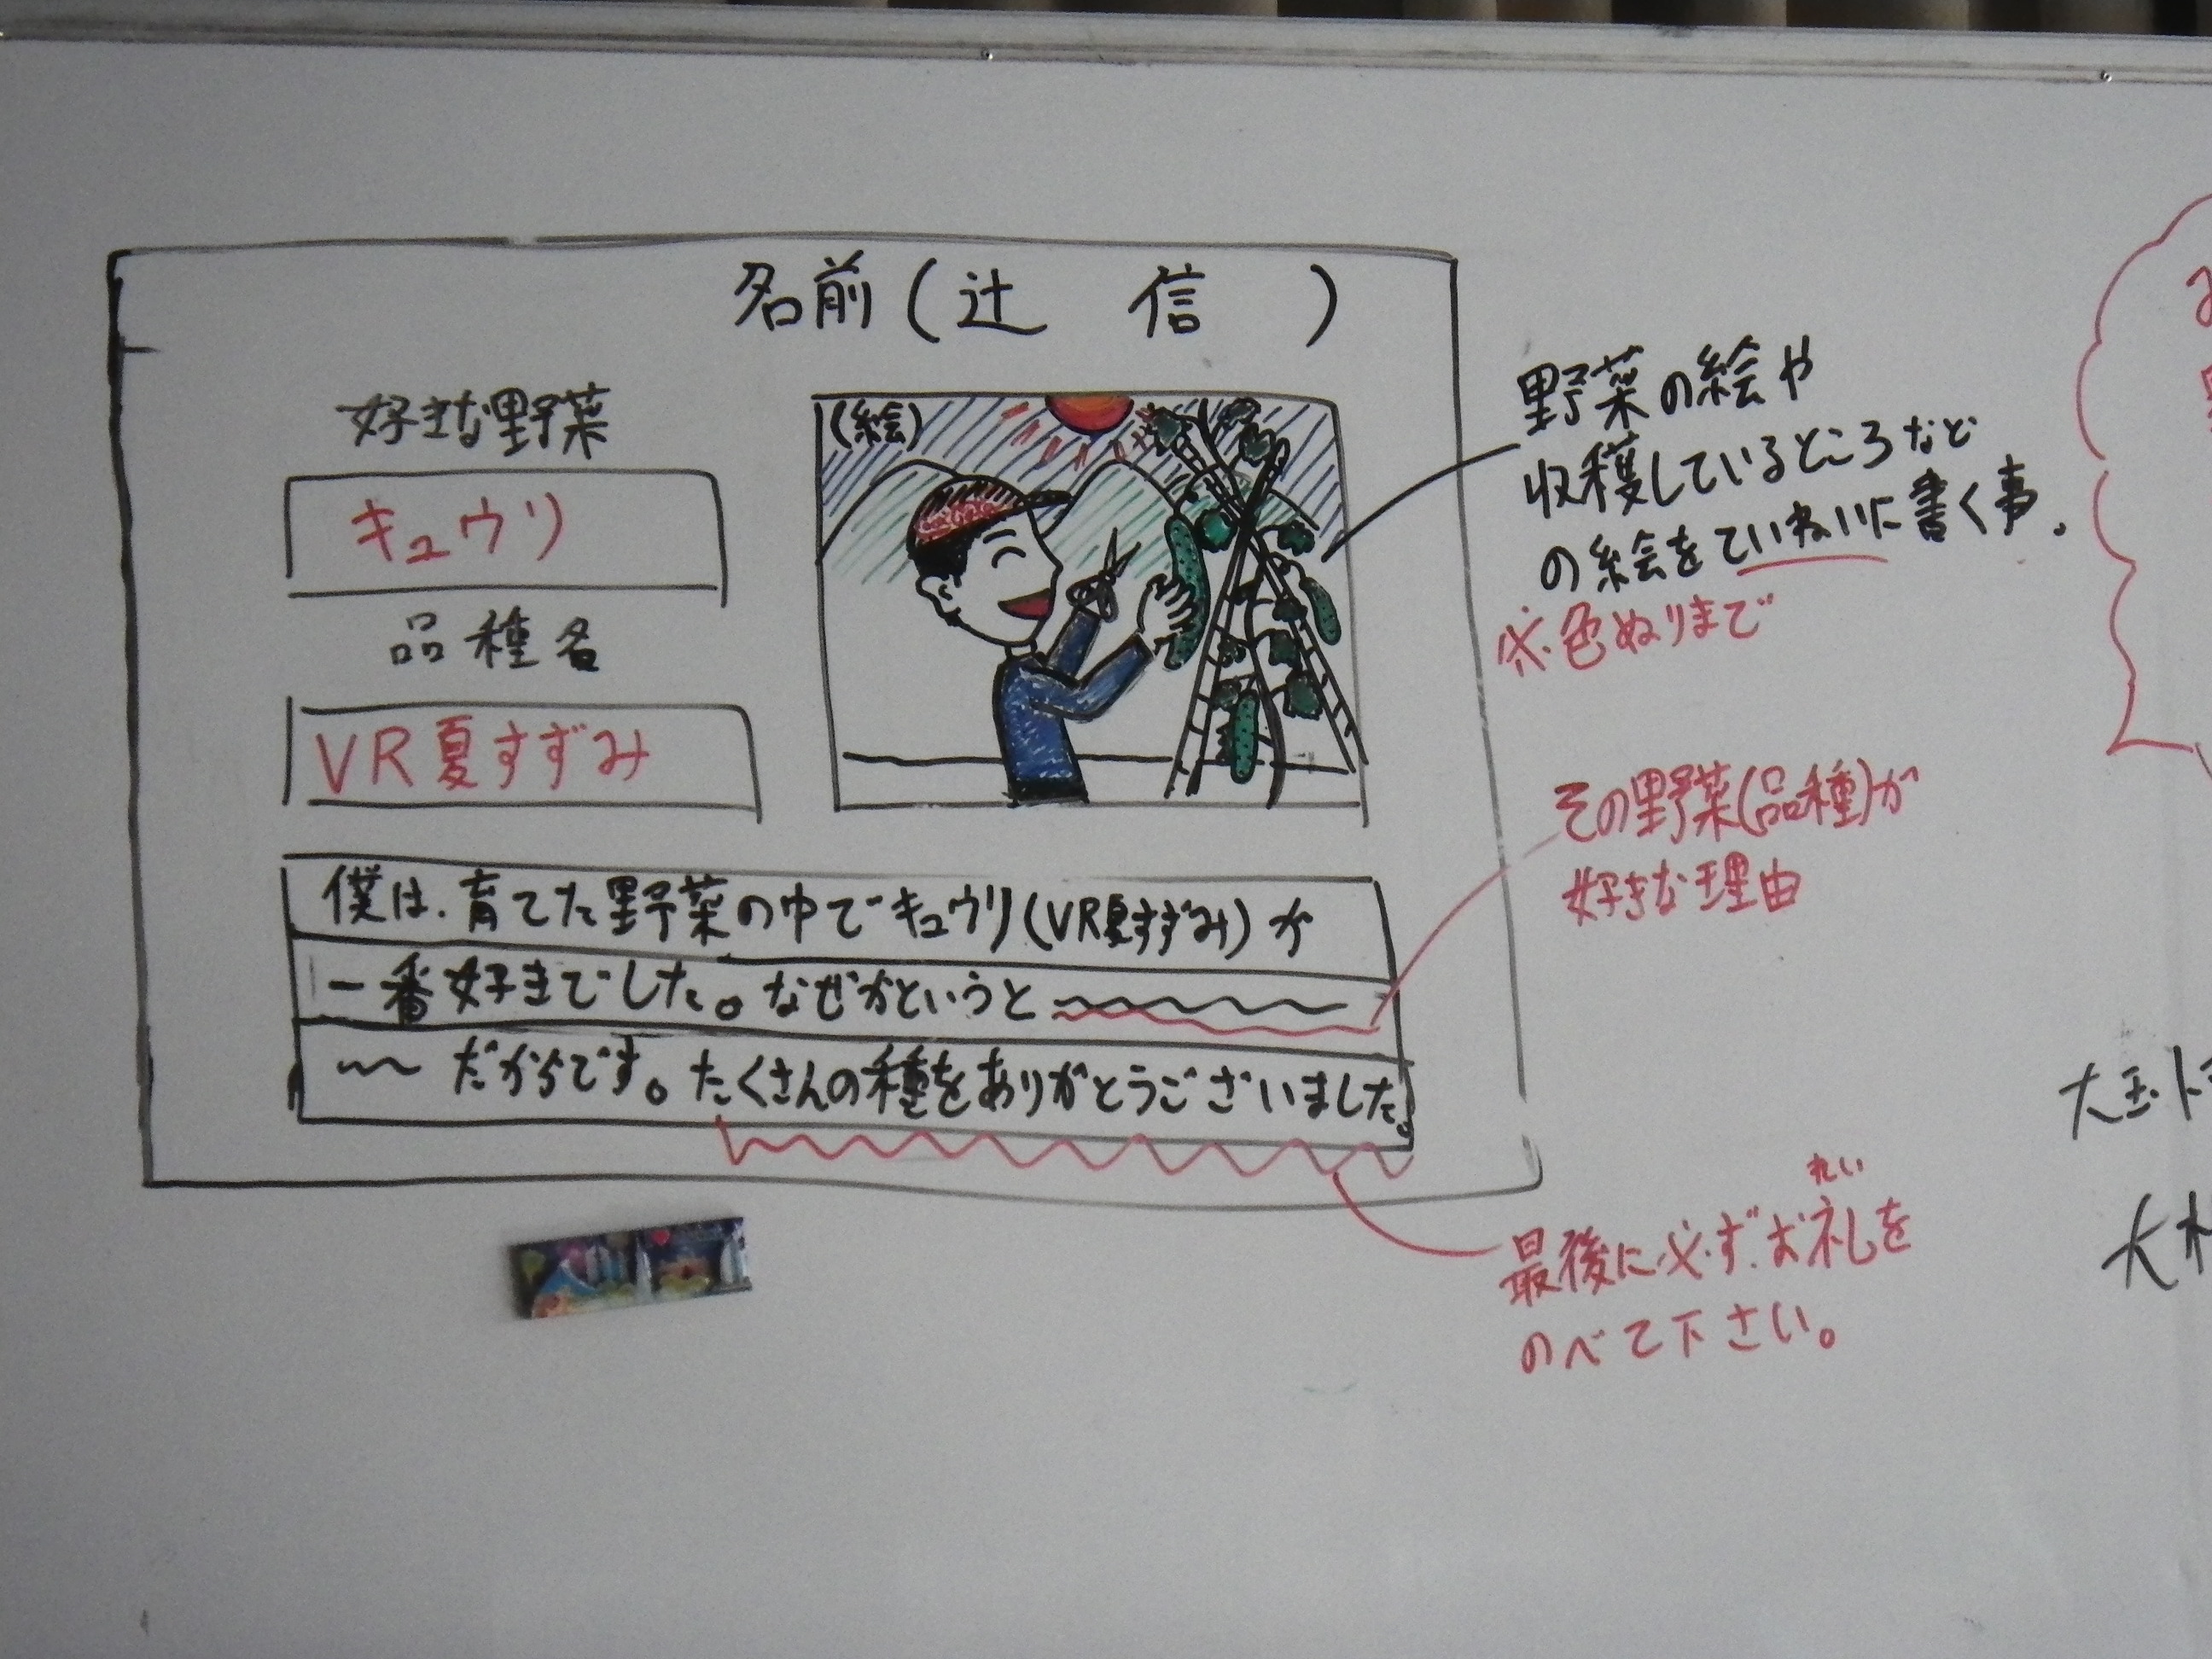 名前(辻 信 )
好きな野菜
キュウリ
品種名
VR夏すずみ
(絵)
野菜の絵や
収穫しているところなど
の絵をていねいに書く事。
※色ぬりまで
僕は、育てた野菜の中でキュウリ(VR夏すずみ)が
一番好きでした。なぜかというと
だからです。たくさんの種をありがとうございました。
その野菜(品種)が
好きな理由
れい
最後に必ず、お礼を
のべて下さい。
大玉ト
大